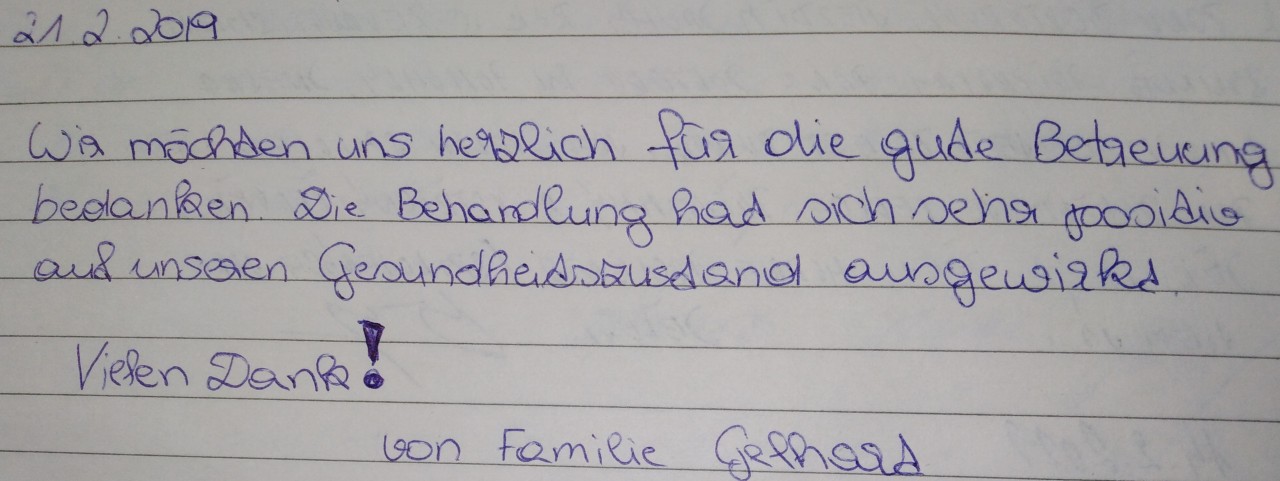 21.2.2019
Wir möchten uns herzlich für die gute Betreuung
bedanken. Die Behandlung hat sich sehr positiv
auf unseren Gesundheitszustand ausgewirkt.
Vielen Dank!
von Familie Gelhart